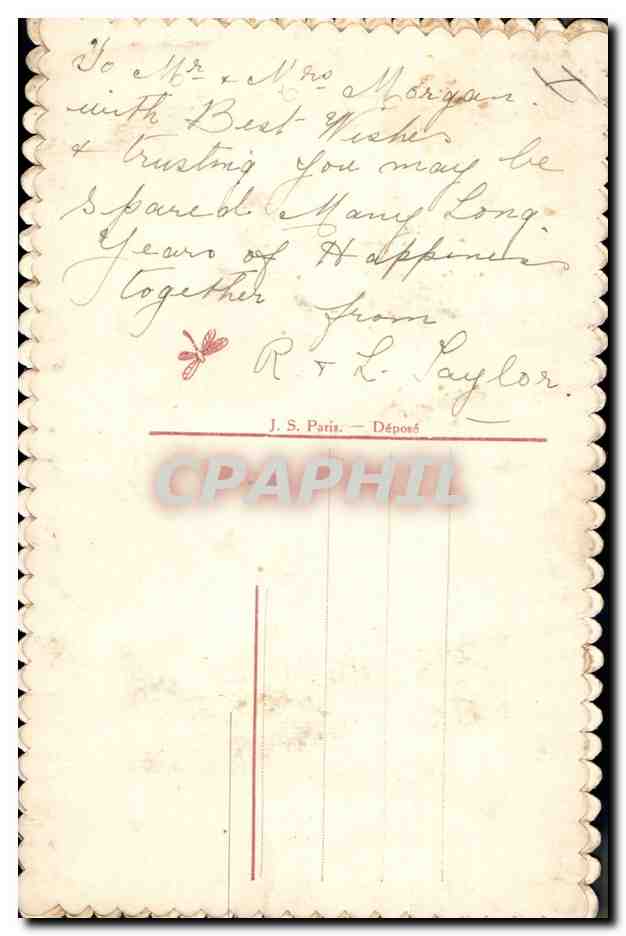 To Mr & Mrs Morgan.
with Best Wishes
& trusting you may be
spared Many Long
Years of Happiness
together from
R & L. Taylor.
J. S. Paris. — Déposé
CPAPHIL